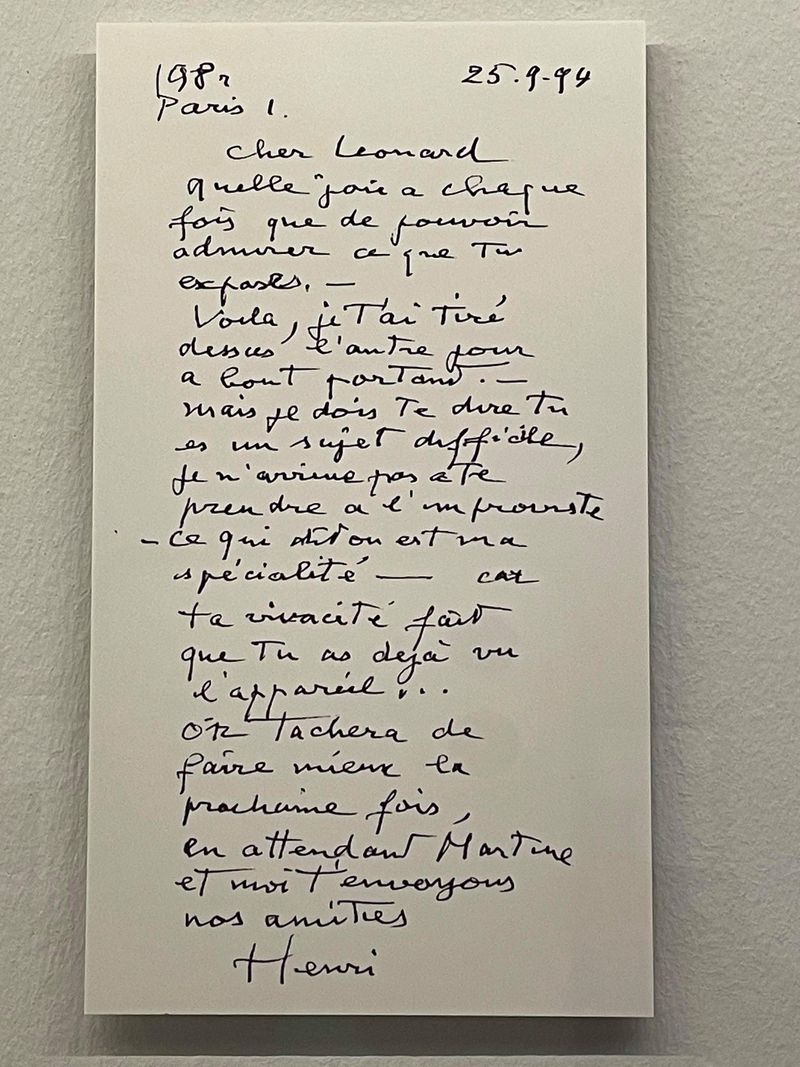 198 r 25.9.94
Paris 1.
cher Leonard
quelle joie a chaque
fois que de pouvoir
admirer ce que tu
exposes. —
Voila, je t'ai tiré
dessus l'autre jour
a bout portant. —
mais je dois te dire tu
es un sujet difficile,
je n'arrive pas a te
prendre a l'improviste
– ce qui dit on est ma
spécialité — car
ta vivacité fait
que tu as dejà vu
l'appareil...
on tachera de
faire mieux la
prochaine fois,
en attendant Martine
et moi t'envoyons
nos amities
Henri